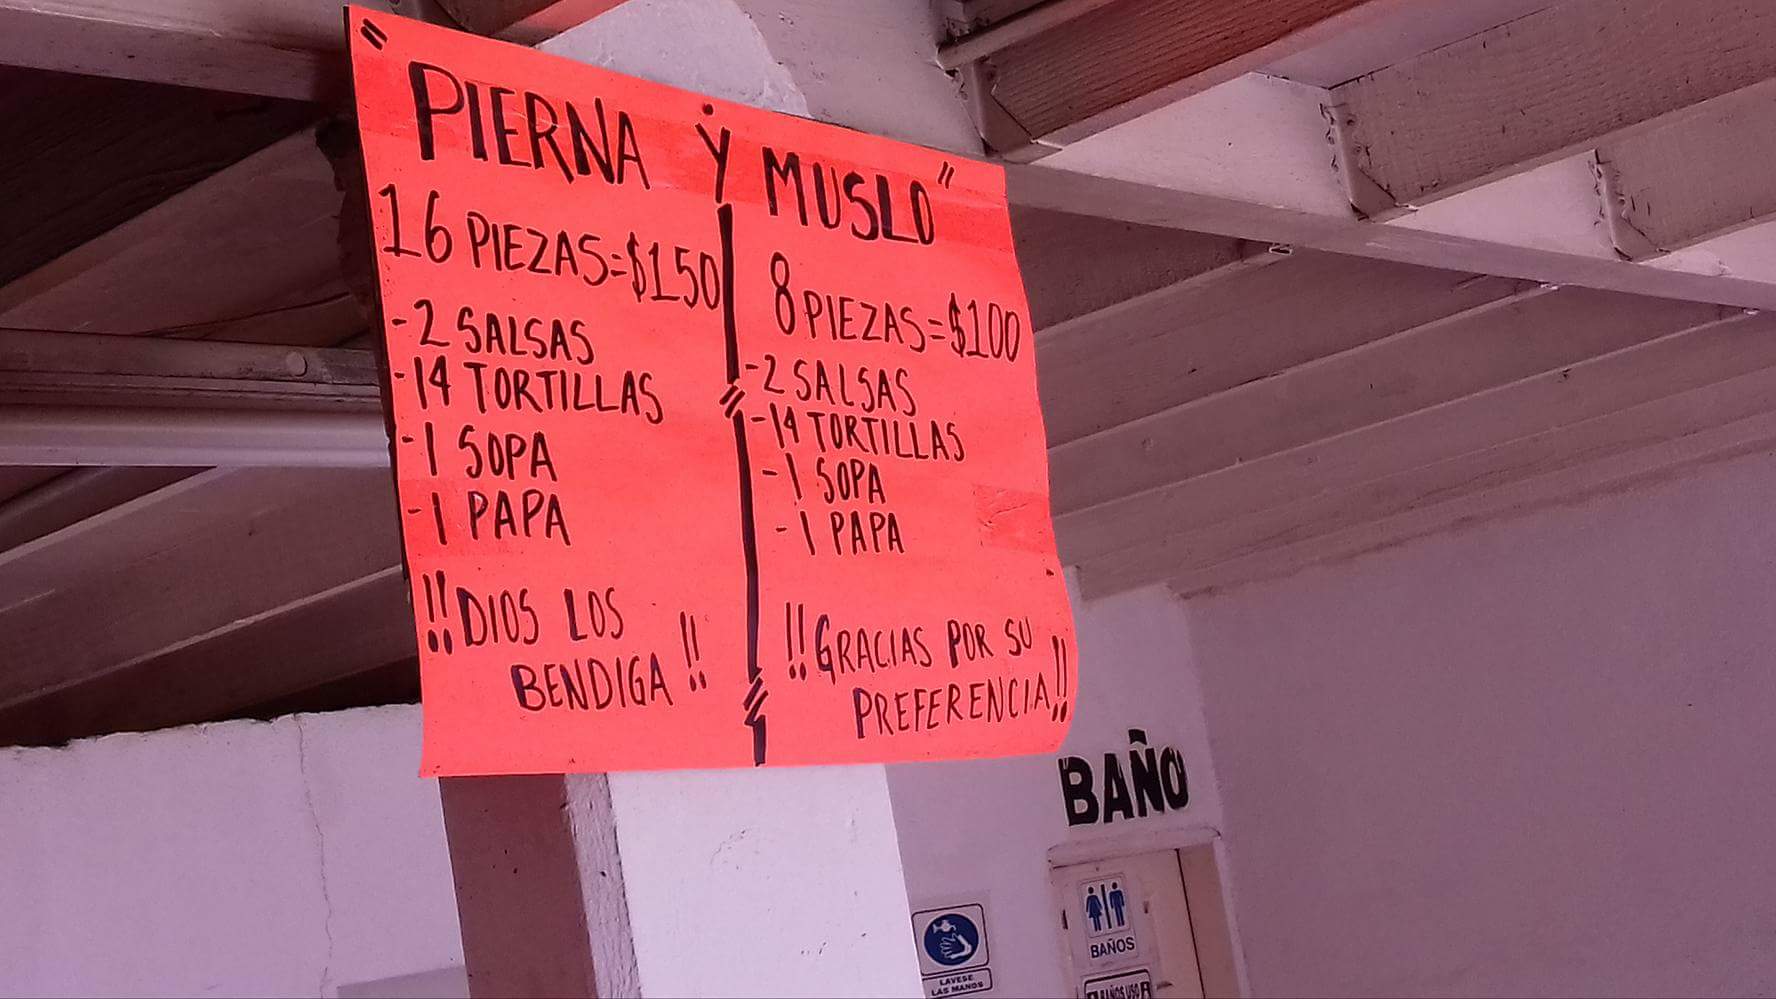 " PIERNA Y MUSLO "
16 PIEZAS=$150
-2 SALSAS
-14 TORTILLAS
-1 SOPA
-1 PAPA
!!DIOS LOS
BENDIGA!!
8 PIEZAS=$100
-2 SALSAS
-14 TORTILLAS
-1 SOPA
-1 PAPA
!!GRACIAS POR SU
PREFERENCIA!!
BAÑO
BAÑOS
BAÑOS USO
LAVESE
LAS MANOS